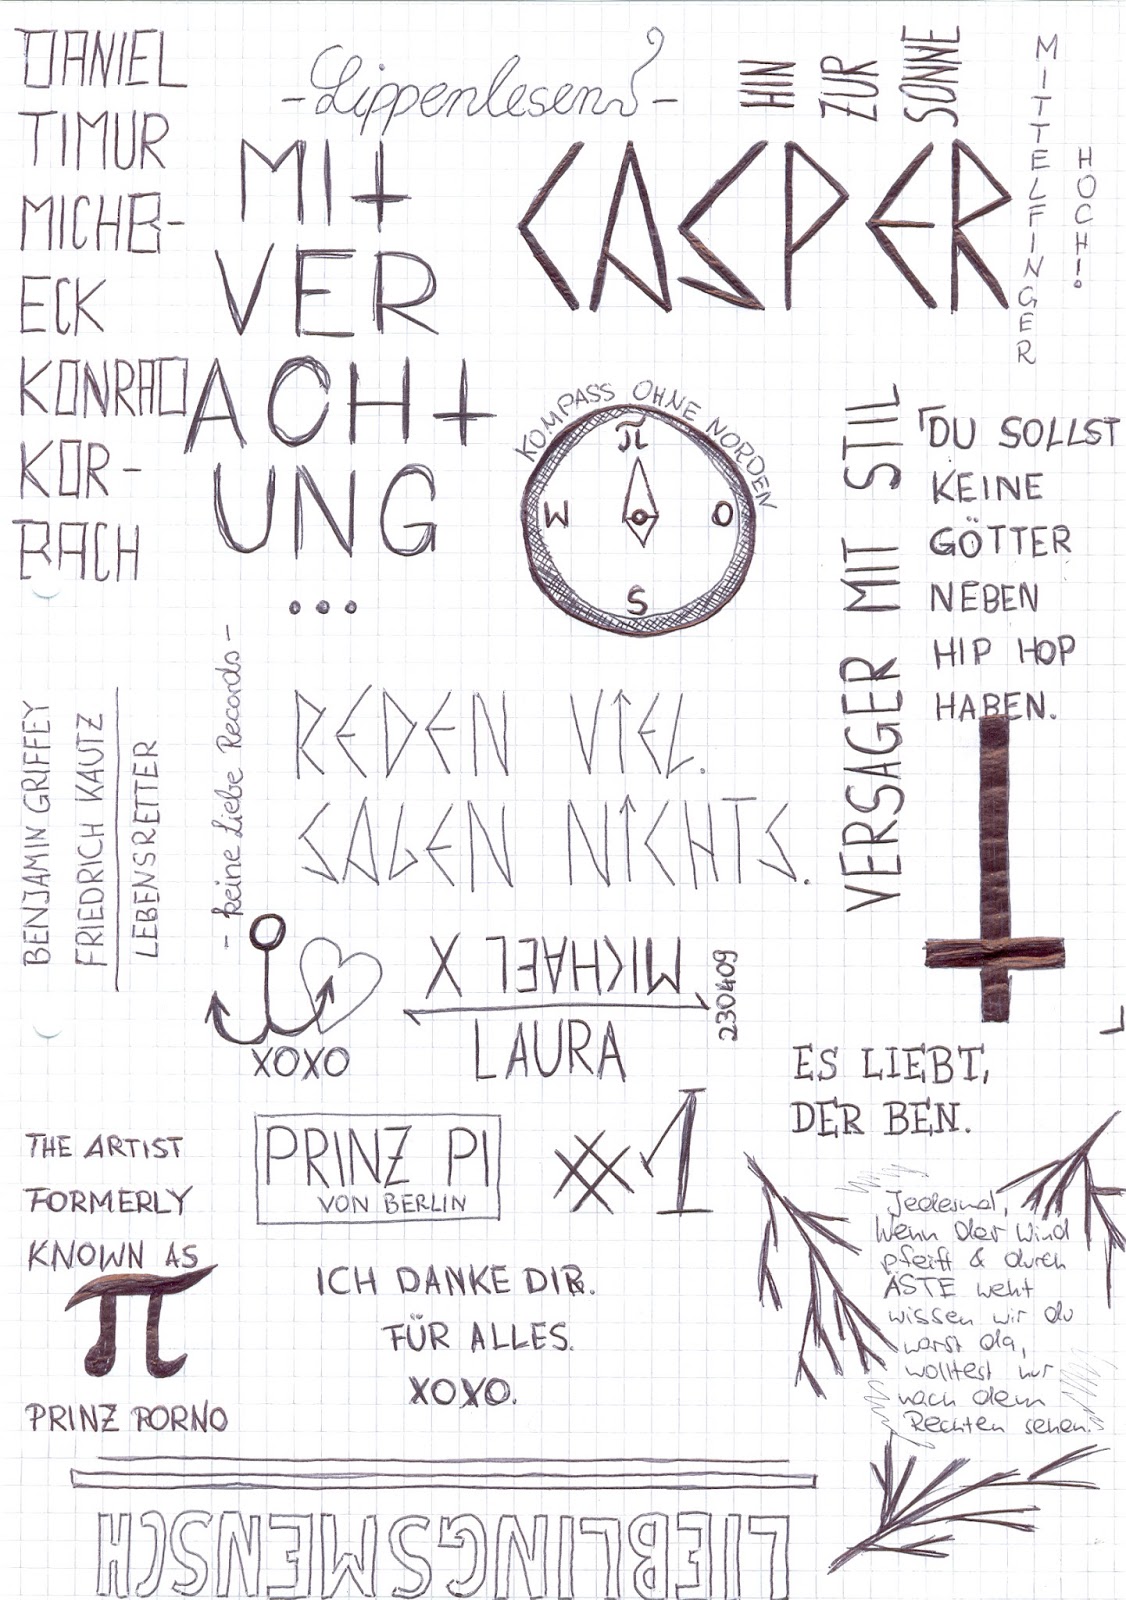 DANIEL
TIMUR
MICHB-
ECK
KONRAD
KOR-
BACH
-Lippenlesen?-
MIT
VER
ACHT
UNG
...
HIN
ZUR
SONNE
CASPER
MITTELFINGER
HOCH!
KOMPASS OHNE NORDEN
π
W
O
S
VERSAGER MIT STIL
「DU SOLLST
KEINE
GÖTTER
NEBEN
HIP HOP
HABEN.
」
BENJAMIN GRIFFEY
FRIEDRICH KAUTZ
LEBENSRETTER
- keine Liebe Records -
REDEN VIEL.
SAGEN NICHTS.
XOXO
MICHAEL X
LAURA
230409
ES LIEBT,
DER BEN.
THE ARTIST
FORMERLY
KNOWN AS
π
PRINZ PORNO
PRINZ PI
VON BERLIN
#1
ICH DANKE DIR.
FÜR ALLES.
XOXO.
Jedesmal,
Wenn der Wind
pfeift & durch
ÄSTE weht
wissen wir du
warst da,
wolltest nur
nach dem
Rechten sehen.
LIEBLINGSMENSCH